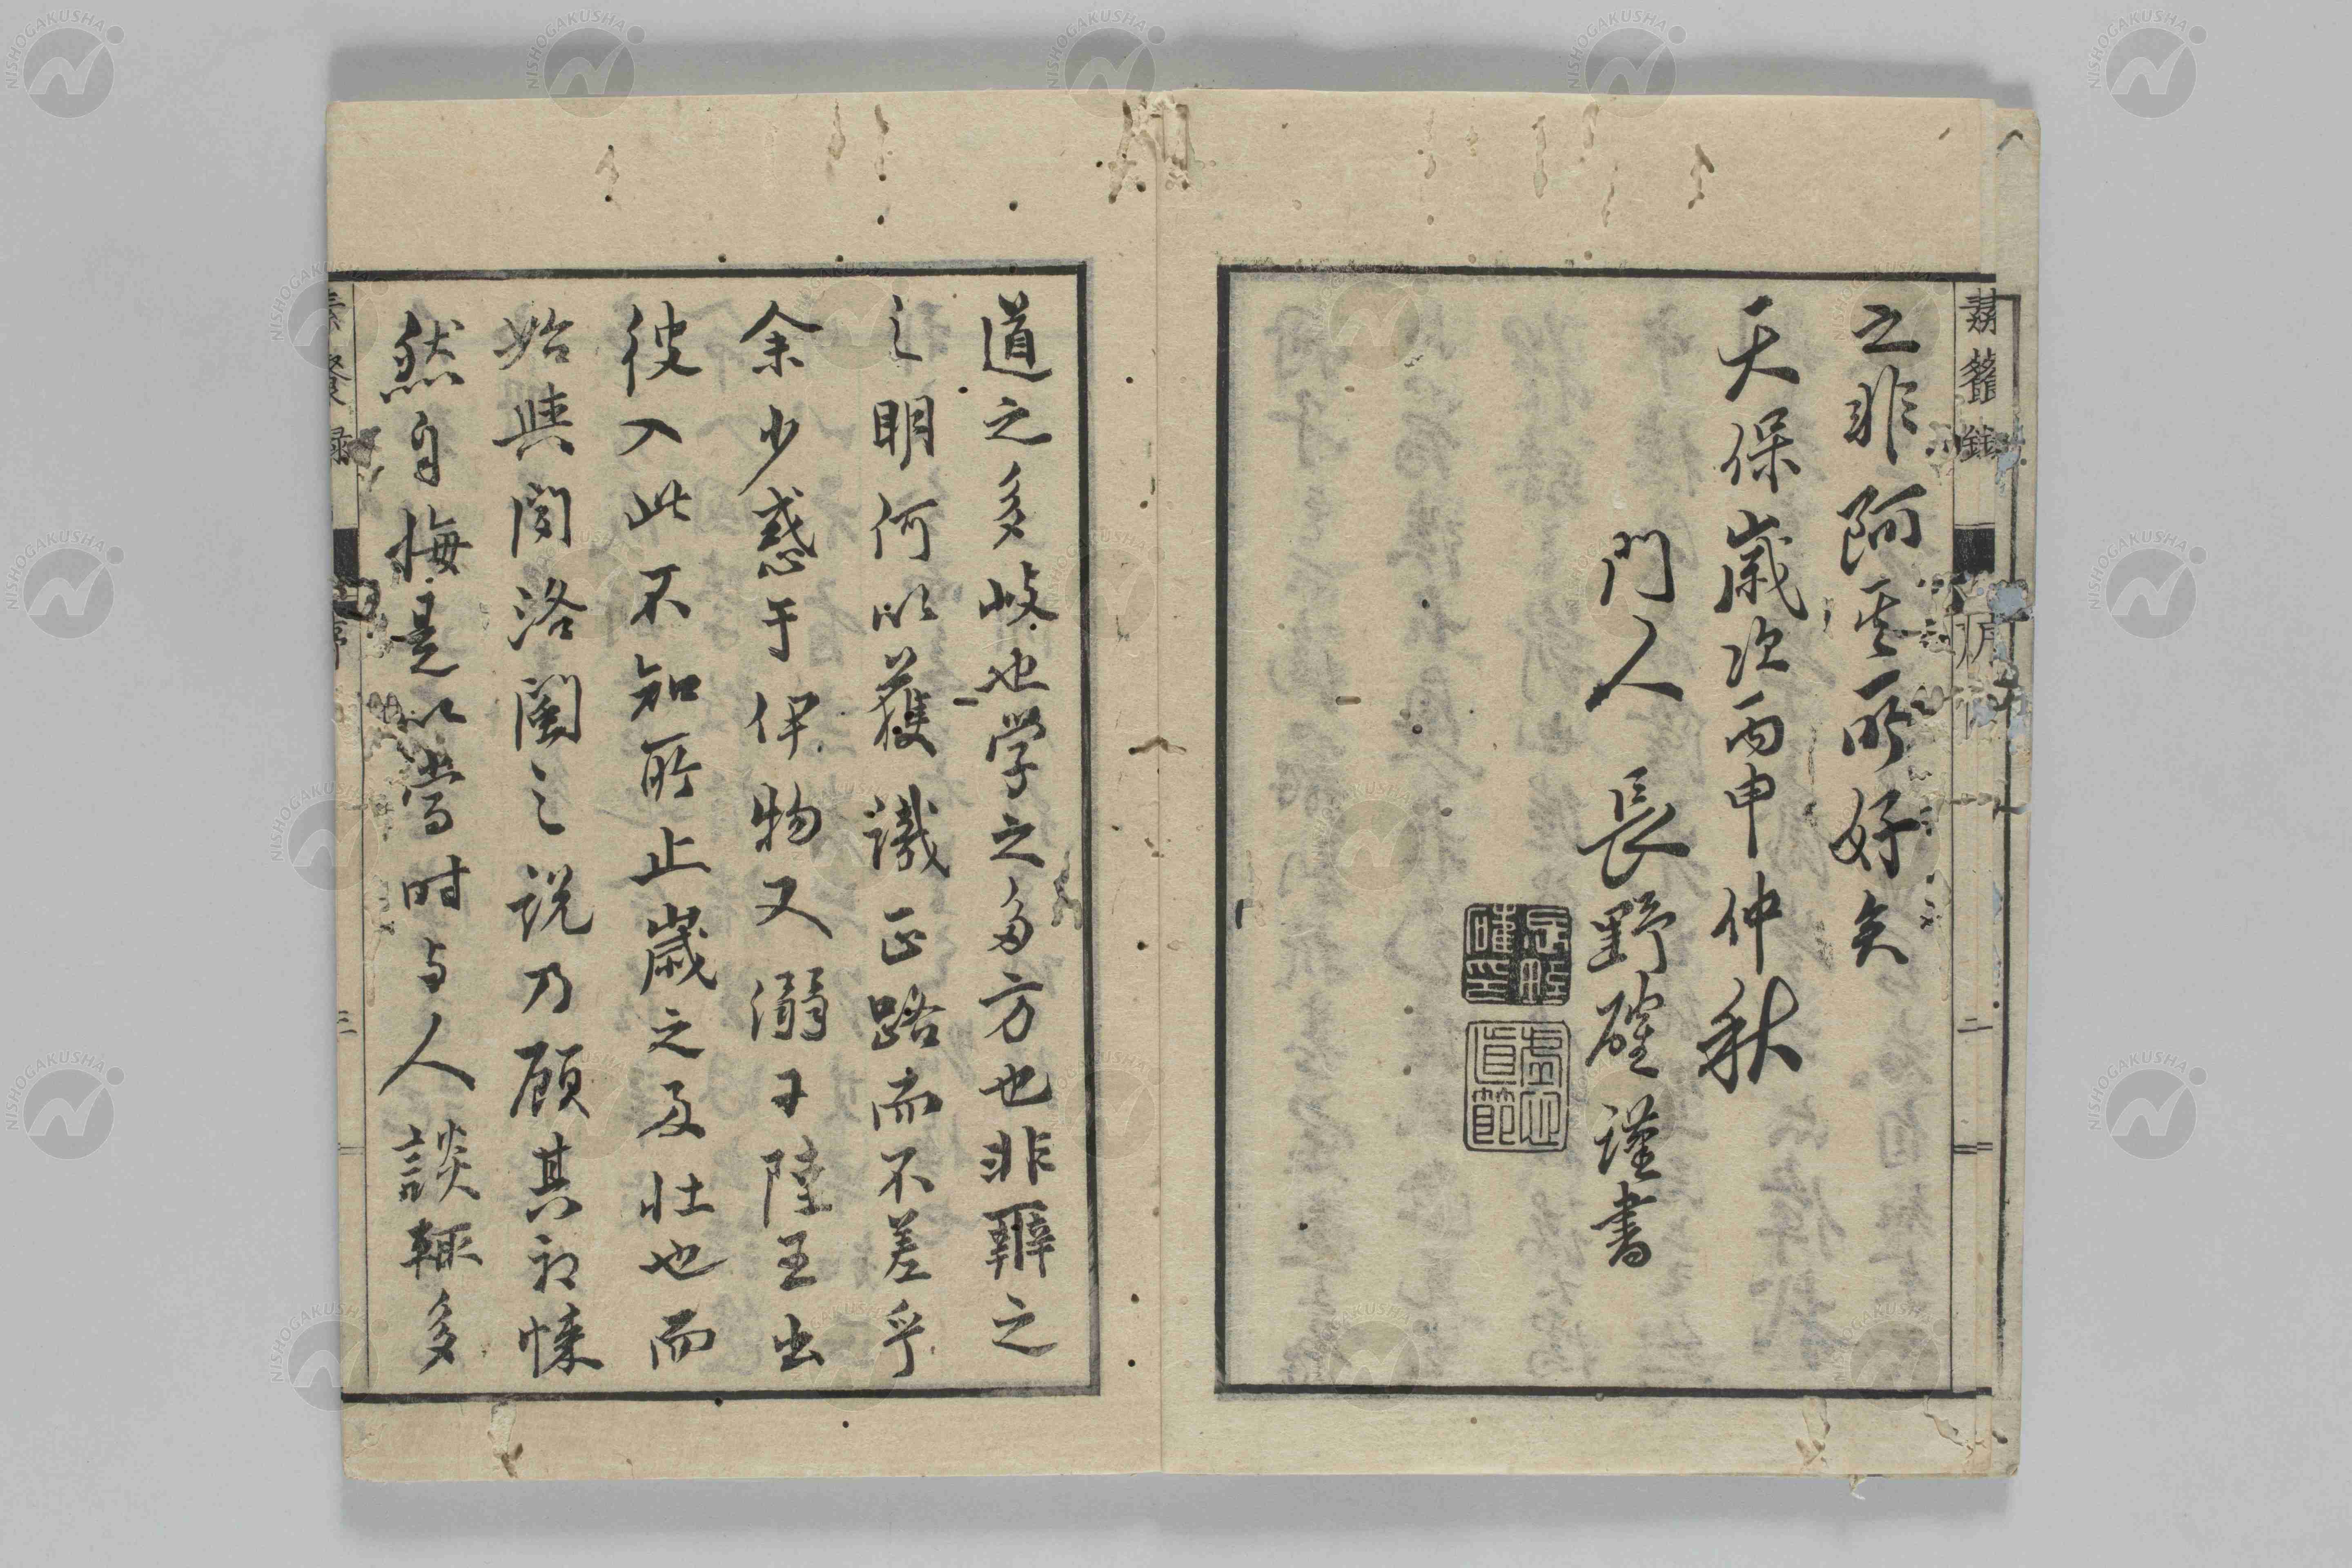 之非阿其所好矣
天保歳次丙申仲秋
門人 長野確謹書
道之多岐也学之多方也非辨之
之明何以獲識正路而不差乎
余少惑于伊物又溺于陸王出
彼入此不知所止歳之及壮也而
始興関洛閩之説乃顧其初悚
然自悔是以当时与人談輒多
NISHOGAKUSHA